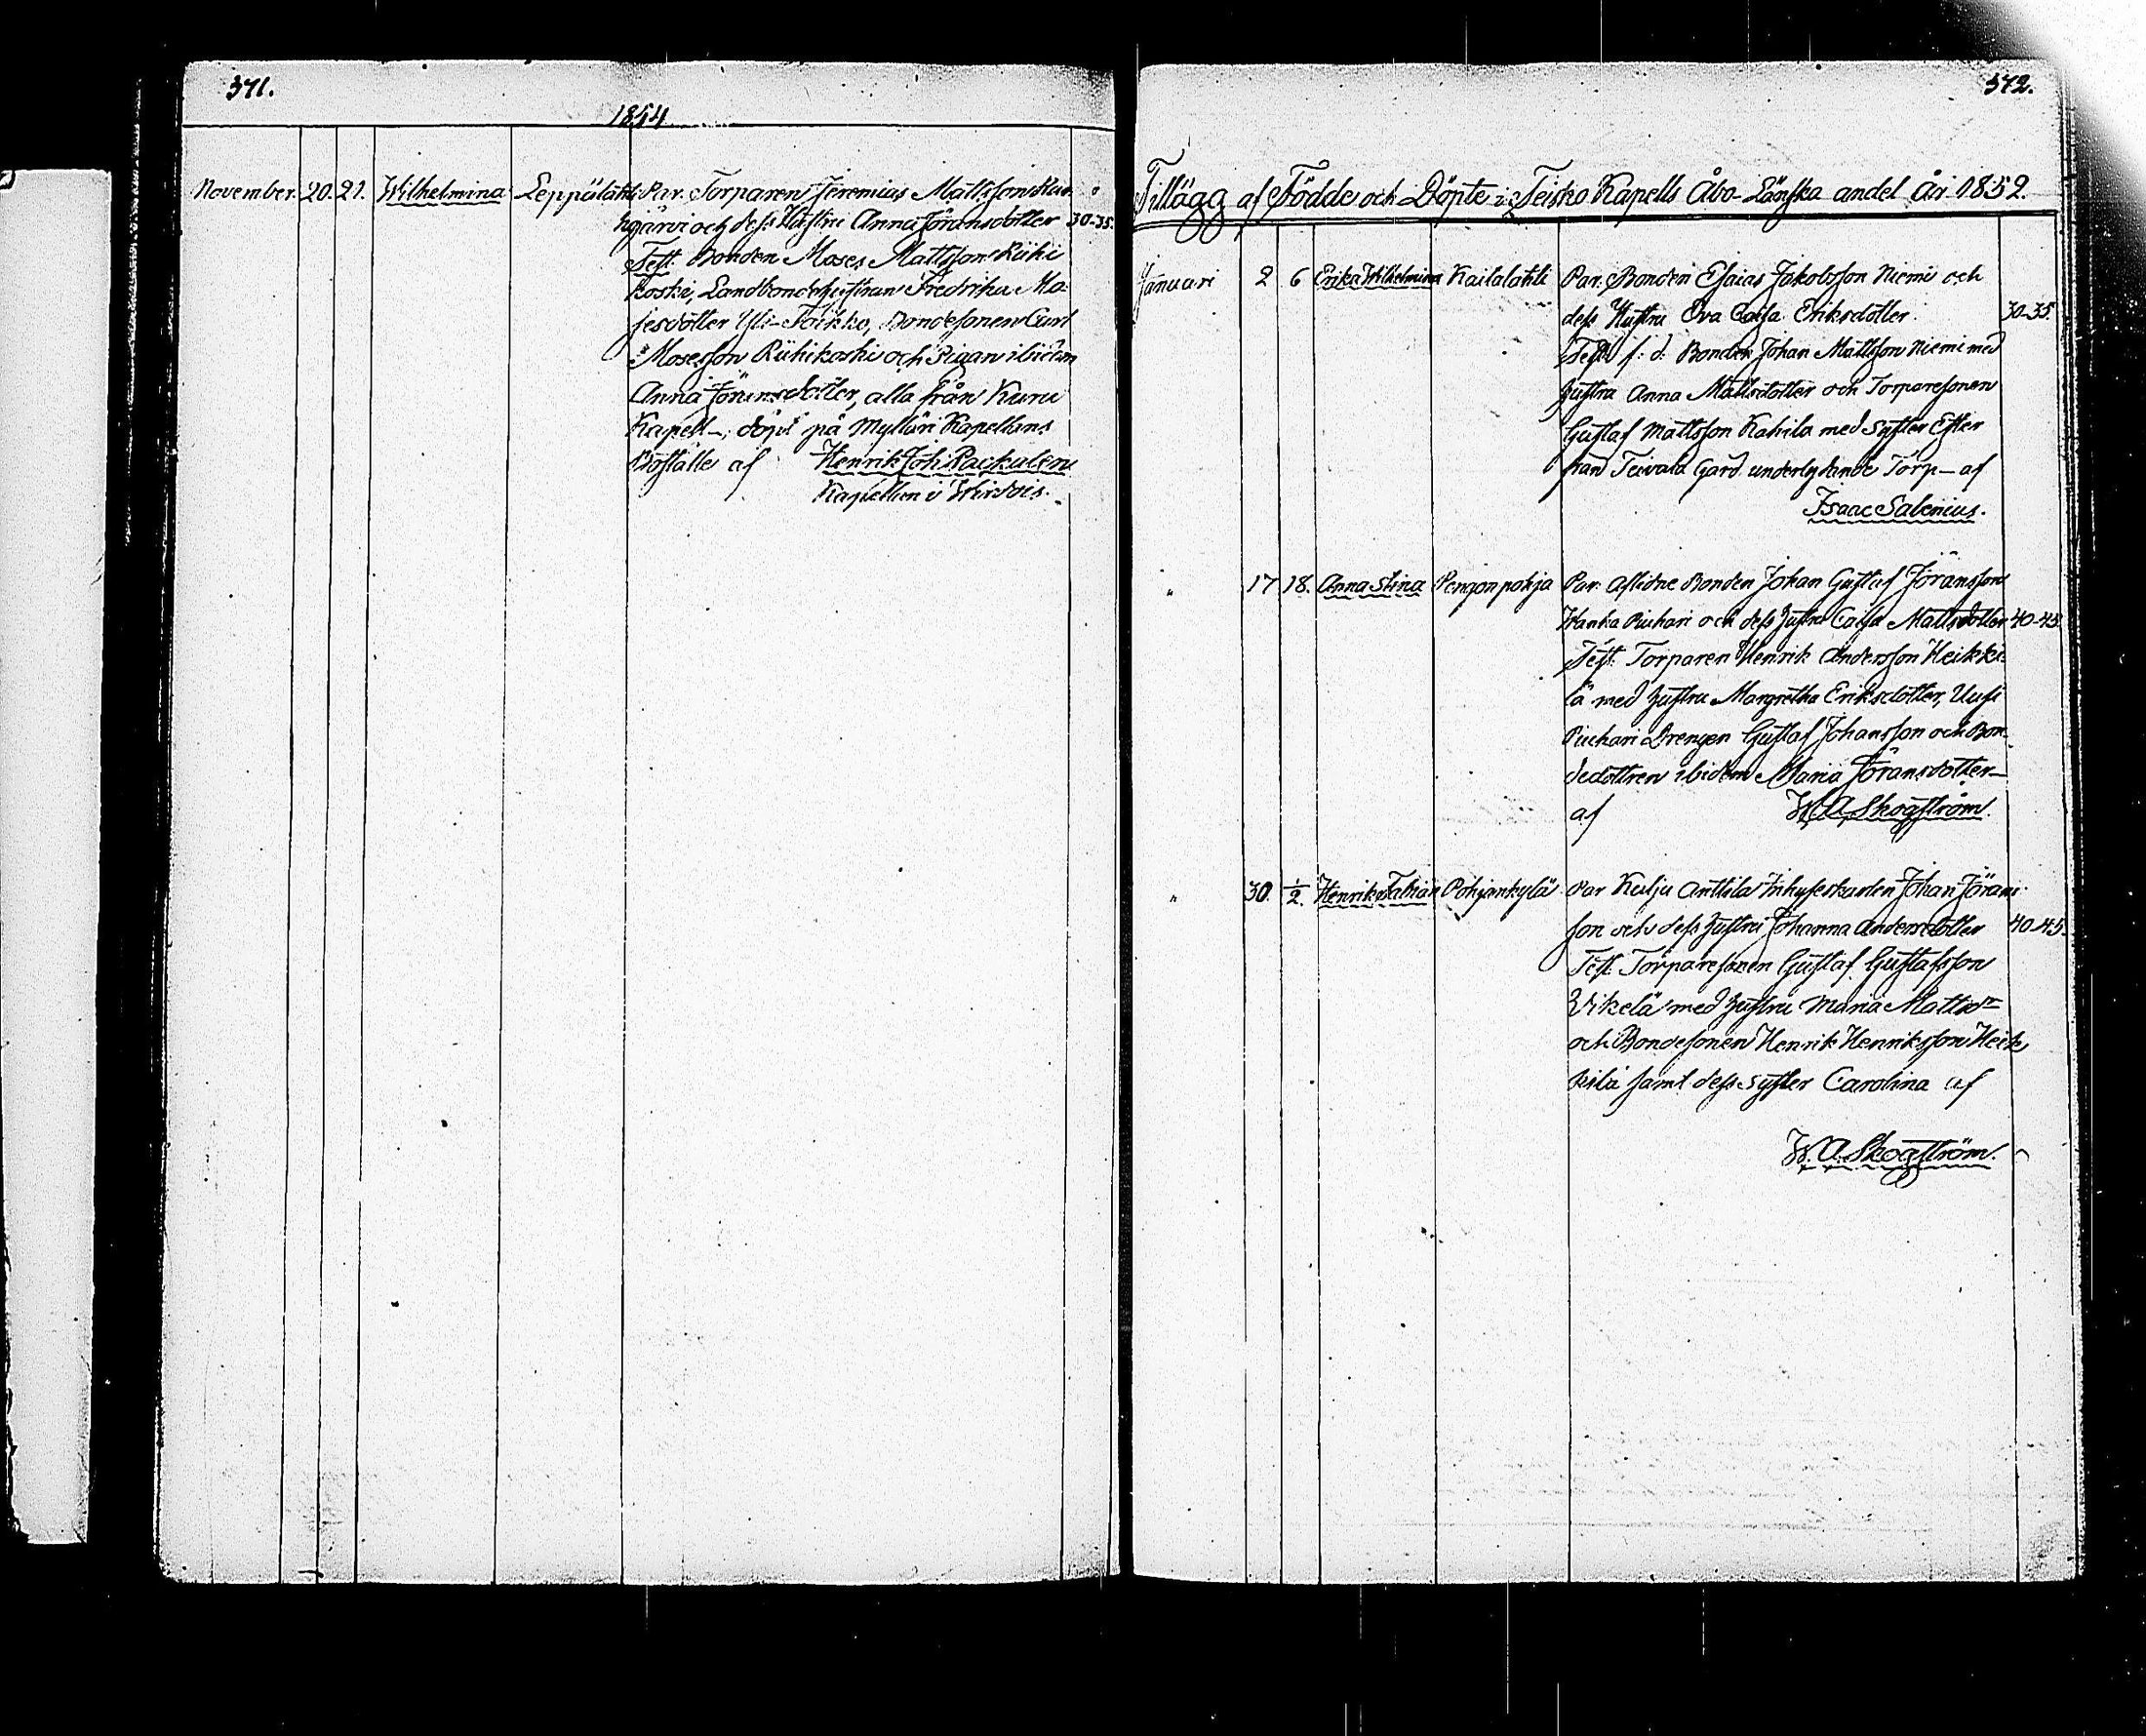 371.
1854
November. 20. 21. Wilhelmina Leppälahti Par. Torparen Jeremias Mattsson Kur-
kjärvi och dess Hustru Anna Jöransdotter 30-35.
Test. Bonden Moses Mattsson Riihi
koski, Landbondehustrun Fredrika Mo-
sesdotter Yli-Toikko, Bondesonen Carl
Mosesson Riihikoski och Pigan ibidem
Anna Jöransdotter, alla från Kuru
Kapell-; döpt på Mylläri Kapellans
Boställe af Henrik Joh. Packalen
Kapellan i Wirdois.
372.
Tillägg af Födde och Döpte i Teisko Kapells Åbo-Länska andel År 1852.
Januari 2 6 Erika Wilhelmina Kailalahti Par. Bonden Esaias Jakobsson Niemi och
dess Hustru Eva Caisa Eriksdotter. 30-35.
Test. f: d: Bonden Johan Mattsson Niemi med
hustru Anna Mattsdotter och Torparesonen
Gustaf Mattsson Kahila med Syster Ester
från Teivala Gård underlydande Torp- af
Isaac Salenius.
" 17 18. Anna Stina Pengonpohja Par. Aflidne Bonden Johan Gustaf Jöransson
Wanha Puhari och dess hustru Caisa Mattsdotter 40-45
Test. Torparen Henrik Andersson Heikki-
lä med hustru Margretha Eriksdotter, Uusi
Puhari Drengen Gustaf Johansson och Bon-
dedottren ibidem Maria Jöransdotter-
af W. A. Skogström.
" 30. 1/2. Henrik Fabian Pohjankylä Par Kulju Anttila Inhysekarlen Johan Jörans-
son och dess hustru Johanna Andersdotter 40-45.
Test. Torparesonen Gustaf Gustafsson
med hustru Maria Mattsdr
och Bondesonen Henrik Henriksson Heik
kilä samt dess syster Carolina af
W. A. Skogström.